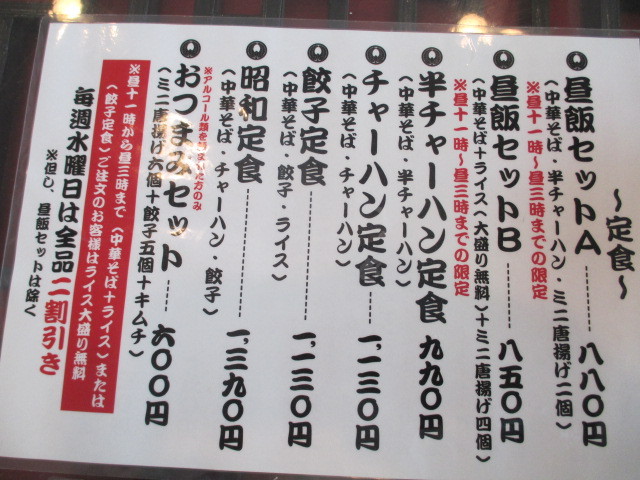 〜定食〜
昼飯セットA 八八〇円
(中華そば・半チャーハン・ミニ唐揚げ二個)
※昼十一時〜昼三時までの限定
昼飯セットB 八五〇円
(中華そば+ライス(大盛り無料)+ミニ唐揚げ四個)
※昼十一時〜昼三時までの限定
半チャーハン定食 九九〇円
(中華そば・半チャーハン)
チャーハン定食 一、一三〇円
(中華そば・チャーハン)
餃子定食 一、一三〇円
(中華そば・餃子・ライス)
昭和定食 一、三九〇円
(中華そば・チャーハン・餃子)
※アルコール類を頼まれた方のみ
おつまみセット 六〇〇円
(ミニ唐揚げ六個+餃子五個+キムチ)
※昼十一時から昼三時まで(中華そば+ライス)または
(餃子定食)ご注文のお客様はライス大盛り無料
毎週水曜日は全品二割引き
※但し、昼飯セットは除く